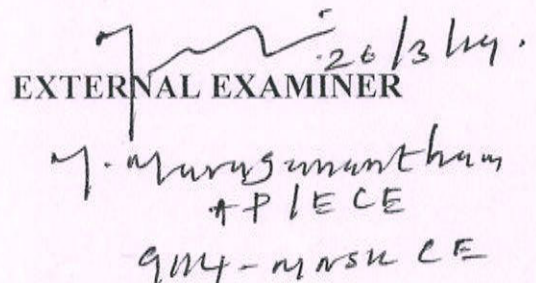 26/3/19.
EXTERNAL EXAMINER
M. Muruganantham
AP/ECE
9114-MNSK CE